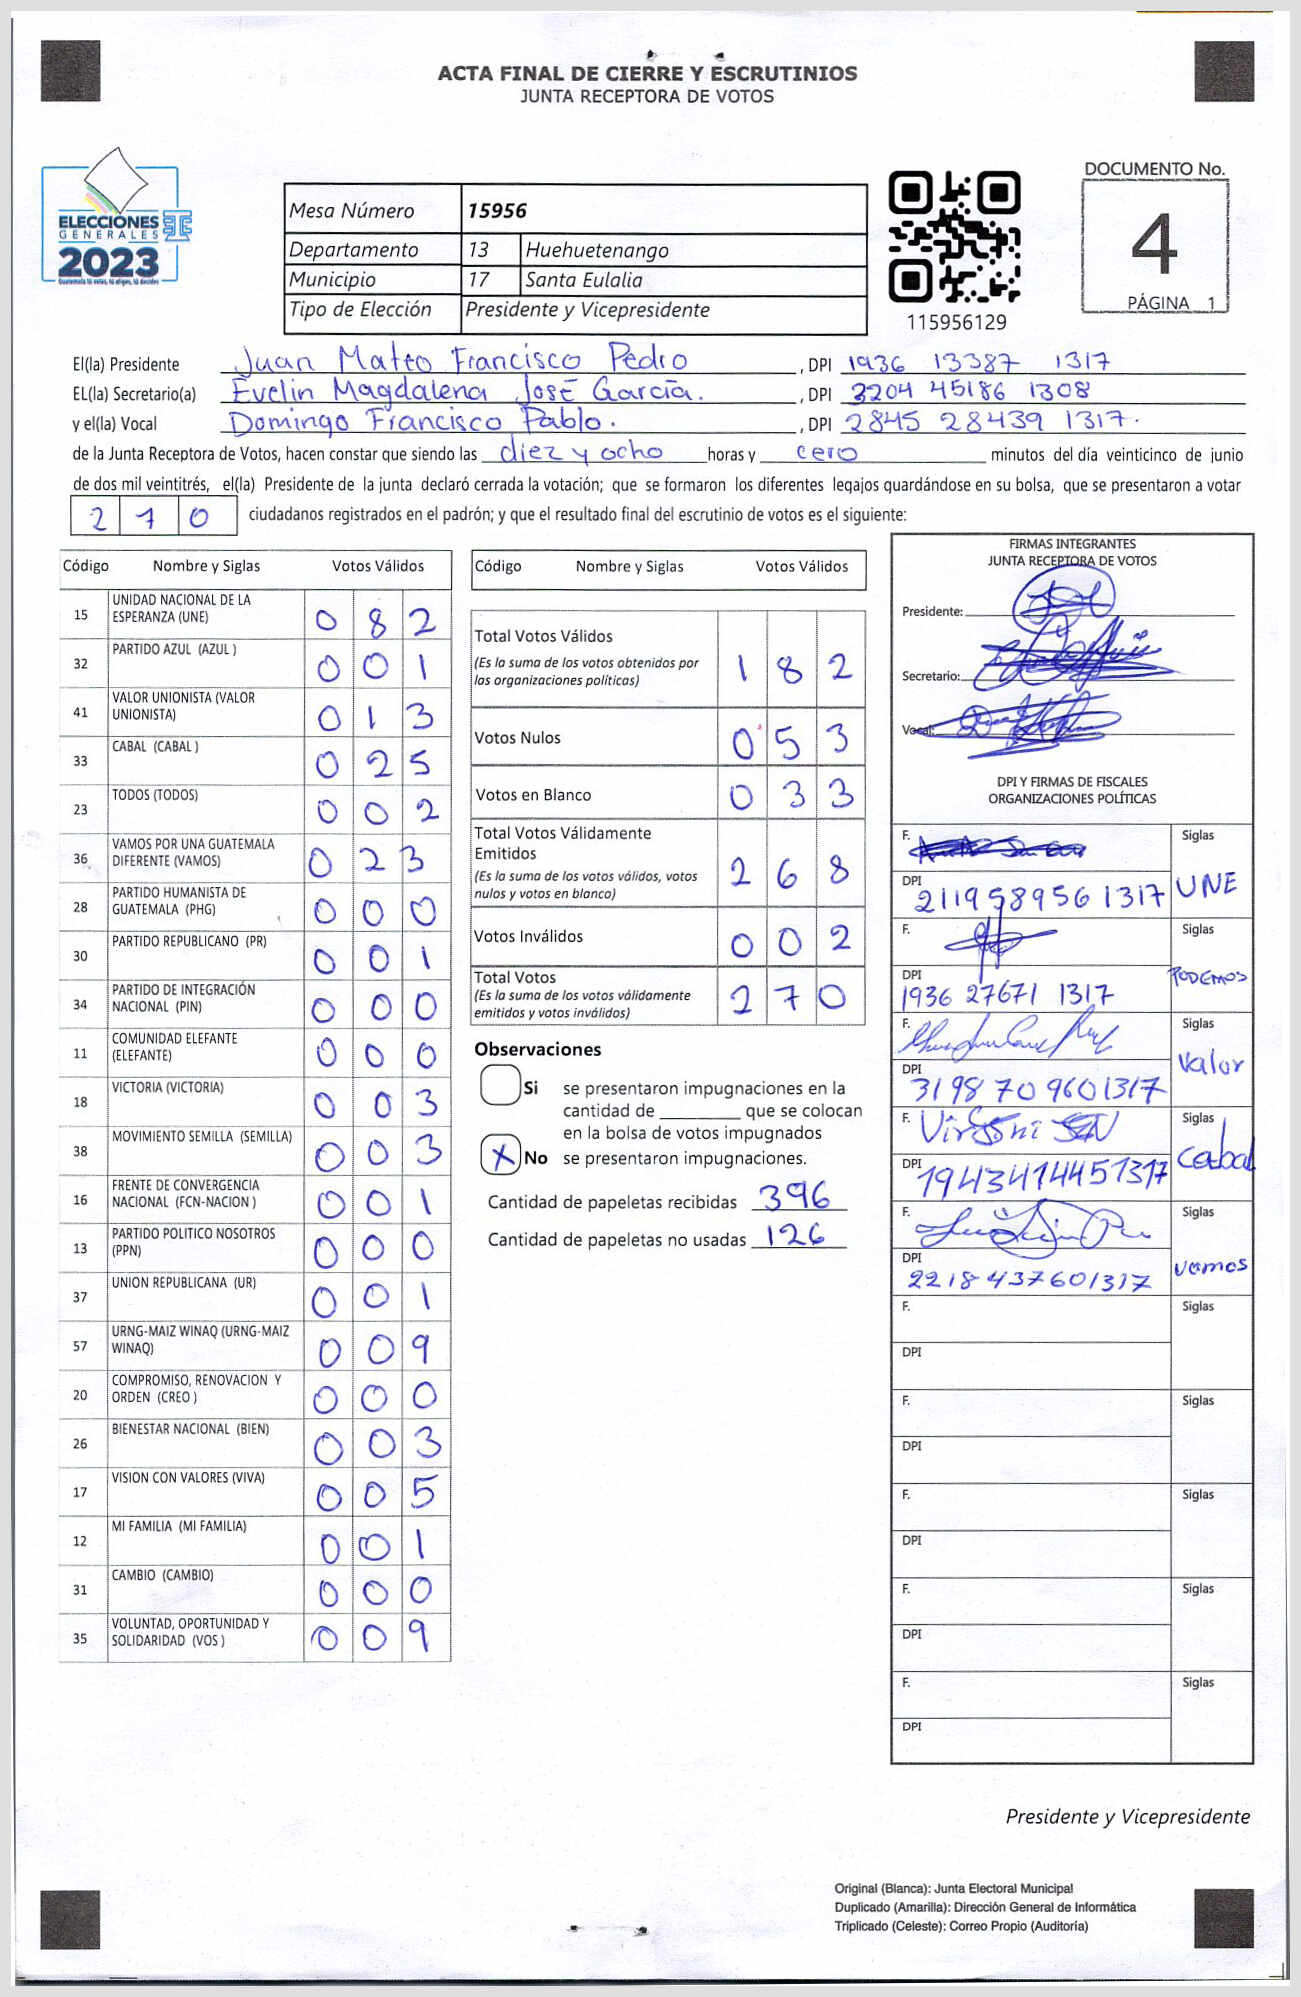 ACTA FINAL DE CIERRE Y ESCRUTINIOS
JUNTA RECEPTORA DE VOTOS
ELECCIONES
GENERALES
2023
Mesa Número 15956
Departamento 13 Huehuetenango
Municipio 17 Santa Eulalia
Tipo de Elección Presidente y Vicepresidente
115956129
DOCUMENTO No.
4
PÁGINA 1
El(la) Presidente Juan Mateo Francisco Pedro , DPI 1936 13387 1317
EL(la) Secretario(a) Evelin Magdalena José García. , DPI 3204 45186 1308
y el(la) Vocal Domingo Francisco Pablo. , DPI 2845 28439 1317.
de la Junta Receptora de Votos, hacen constar que siendo las diez y ocho horas y cero minutos del día veinticinco de junio
de dos mil veintitrés, el(la) Presidente de la junta declaró cerrada la votación; que se formaron los diferentes legajos guardándose en su bolsa, que se presentaron a votar
270 ciudadanos registrados en el padrón; y que el resultado final del escrutinio de votos es el siguiente:
Código Nombre y Siglas Votos Válidos
15 UNIDAD NACIONAL DE LA ESPERANZA (UNE) 082
32 PARTIDO AZUL (AZUL ) 001
41 VALOR UNIONISTA (VALOR UNIONISTA) 013
33 CABAL (CABAL ) 025
23 TODOS (TODOS) 002
36 VAMOS POR UNA GUATEMALA DIFERENTE (VAMOS) 023
28 PARTIDO HUMANISTA DE GUATEMALA (PHG) 000
30 PARTIDO REPUBLICANO (PR) 001
34 PARTIDO DE INTEGRACIÓN NACIONAL (PIN) 000
11 COMUNIDAD ELEFANTE (ELEFANTE) 000
18 VICTORIA (VICTORIA) 003
38 MOVIMIENTO SEMILLA (SEMILLA) 003
16 FRENTE DE CONVERGENCIA NACIONAL (FCN-NACION ) 001
13 PARTIDO POLITICO NOSOTROS (PPN) 000
37 UNION REPUBLICANA (UR) 001
57 URNG-MAIZ WINAQ (URNG-MAIZ WINAQ) 009
20 COMPROMISO, RENOVACION Y ORDEN (CREO ) 000
26 BIENESTAR NACIONAL (BIEN) 003
17 VISION CON VALORES (VIVA) 005
12 MI FAMILIA (MI FAMILIA) 001
31 CAMBIO (CAMBIO) 000
35 VOLUNTAD, OPORTUNIDAD Y SOLIDARIDAD (VOS ) 009
Código Nombre y Siglas Votos Válidos
Total Votos Válidos 182
(Es la suma de los votos obtenidos por
las organizaciones políticas)
Votos Nulos 053
Votos en Blanco 033
Total Votos Válidamente
Emitidos 268
(Es la suma de los votos válidos, votos
nulos y votos en blanco)
Votos Inválidos 002
Total Votos 270
(Es la suma de los votos válidamente
emitidos y votos inválidos)
Observaciones
Si se presentaron impugnaciones en la
cantidad de ________ que se colocan
en la bolsa de votos impugnados
X No se presentaron impugnaciones.
Cantidad de papeletas recibidas 396
Cantidad de papeletas no usadas 126
FIRMAS INTEGRANTES
JUNTA RECEPTORA DE VOTOS
Presidente:
Secretario:
Vocal:
DPI Y FIRMAS DE FISCALES
ORGANIZACIONES POLÍTICAS
F. Siglas
DPI 2119589561317 UNE
F. Siglas
DPI 1936 27671 1317 PODEMOS
F. Siglas
DPI 3198 70 9601317 Valor
F. Siglas
DPI 1943414451317 Cabal
F. Siglas
DPI 2218437601317 vamos
F. Siglas
DPI
F. Siglas
DPI
F. Siglas
DPI
F. Siglas
DPI
F. Siglas
DPI
Presidente y Vicepresidente
Original (Blanca): Junta Electoral Municipal
Duplicado (Amarilla): Dirección General de Informática
Triplicado (Celeste): Correo Propio (Auditoría)